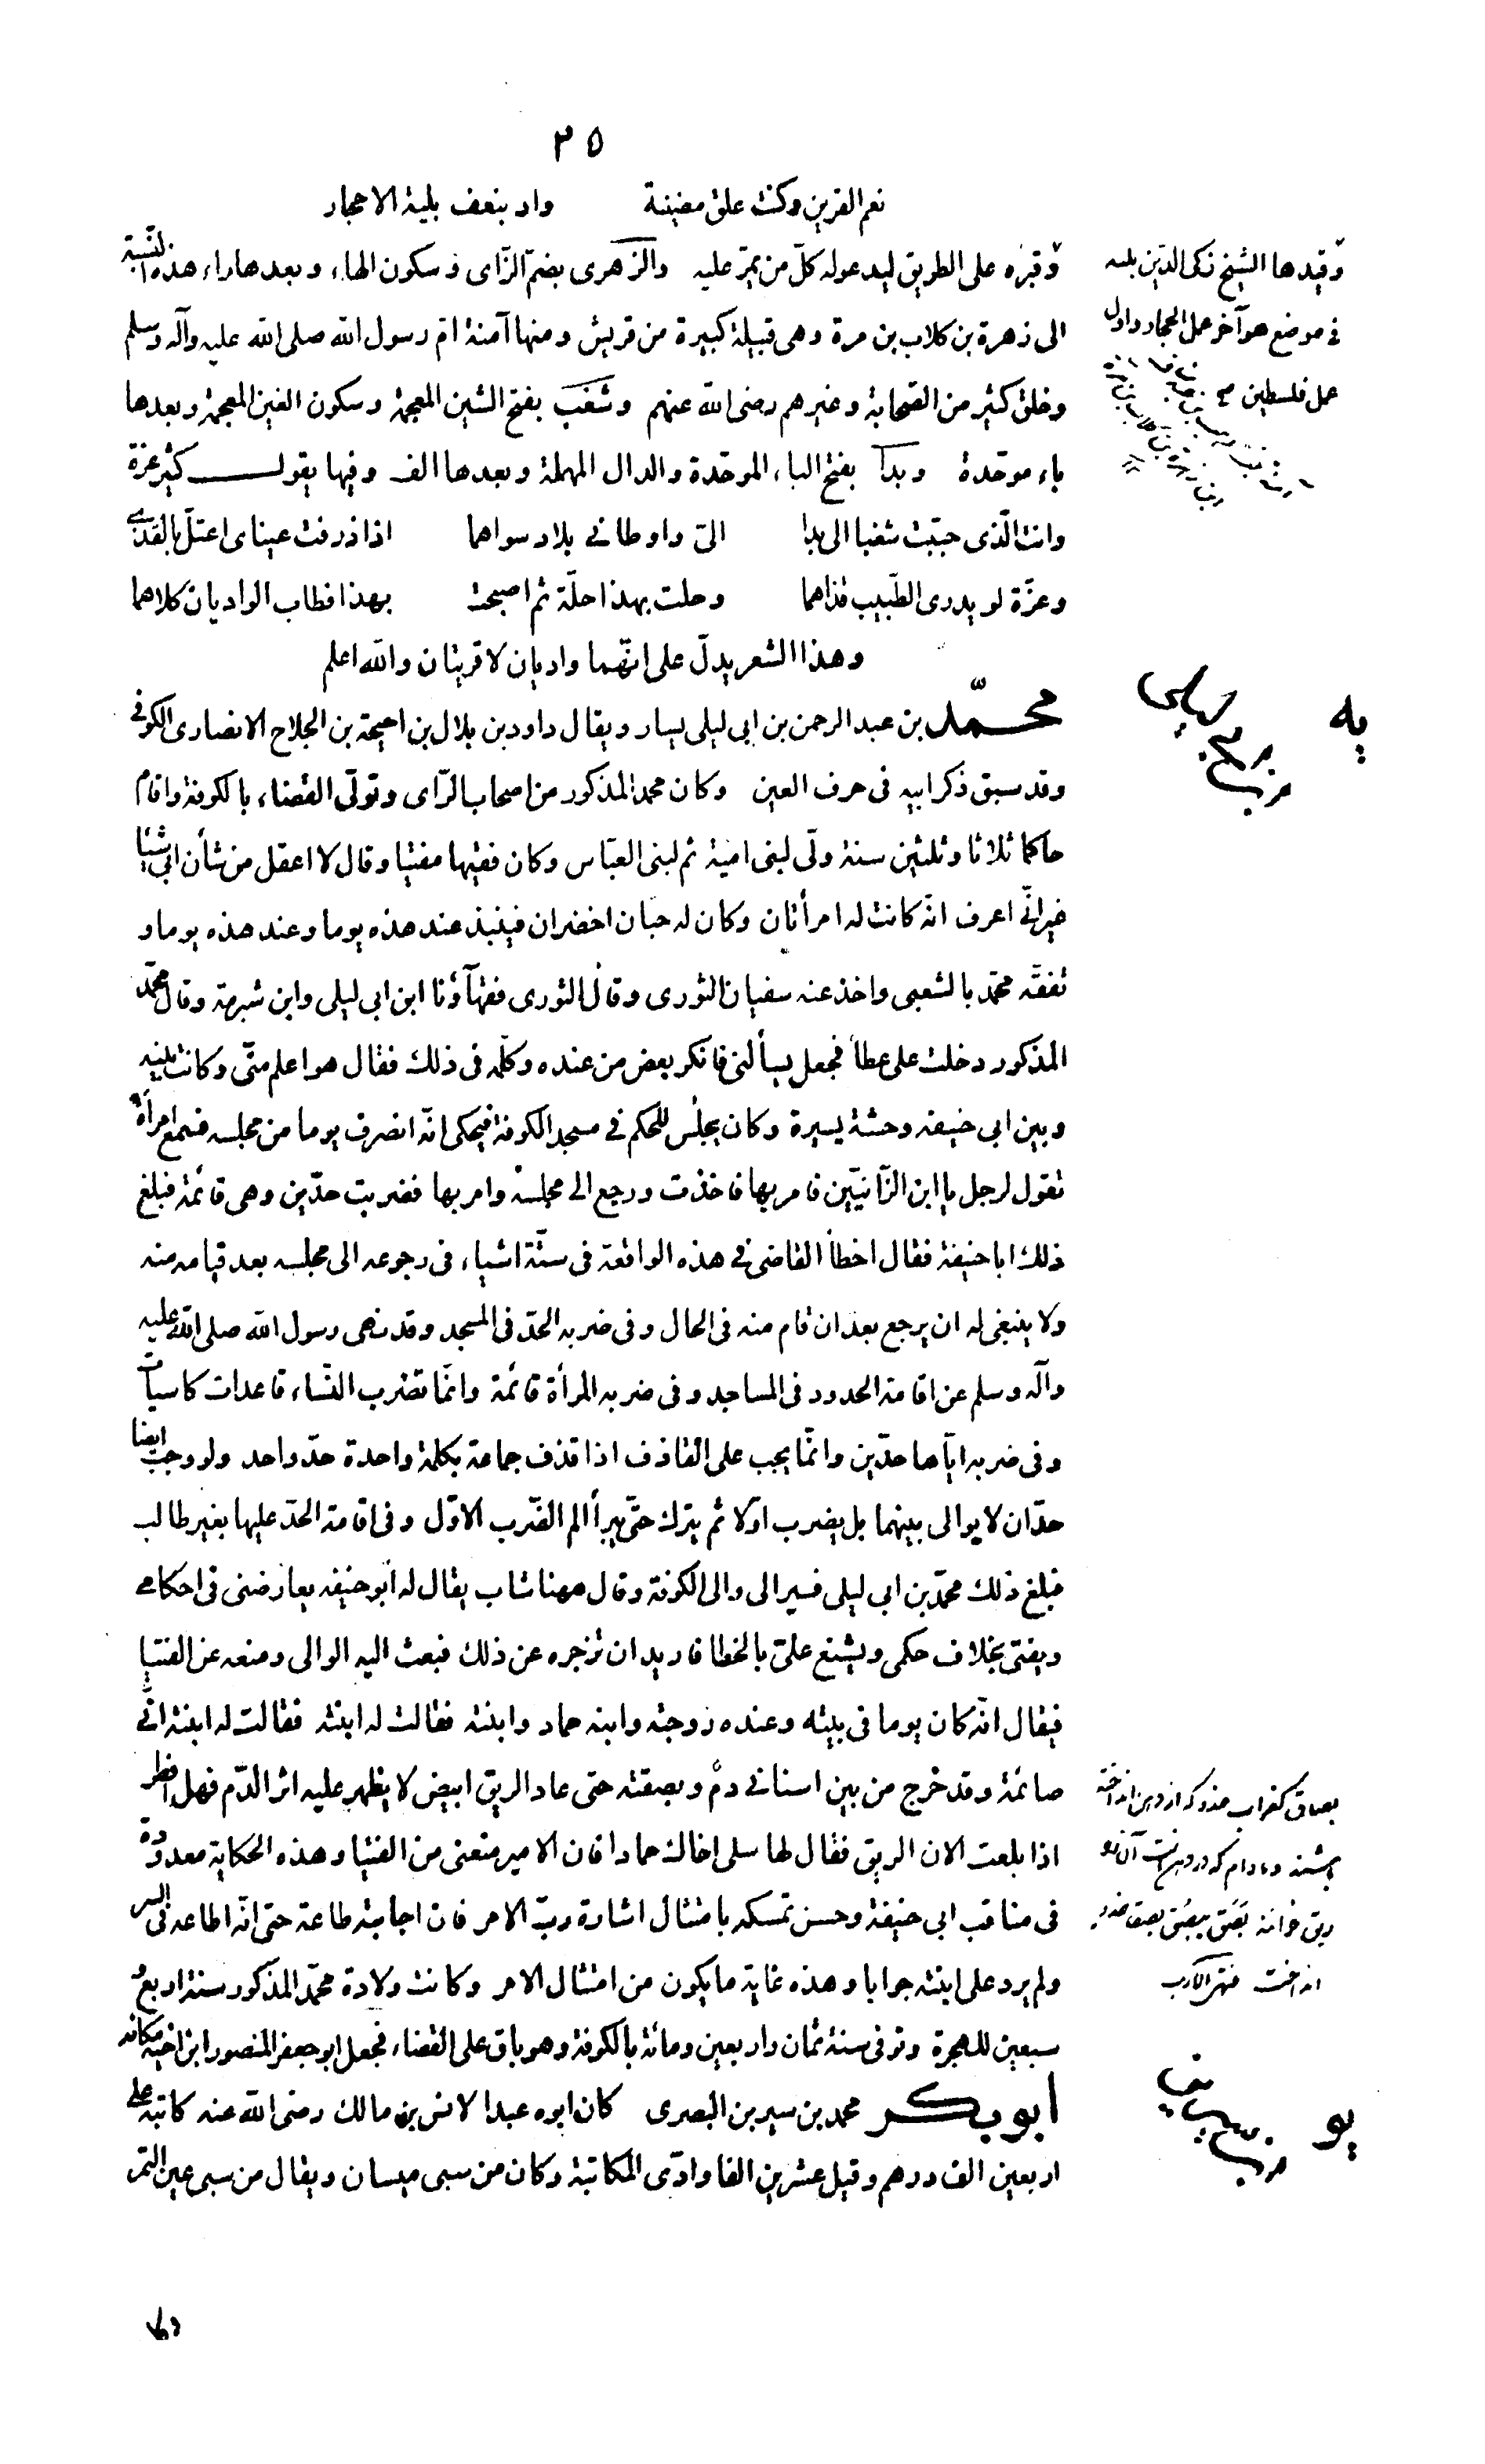 ٣٥
نعم القرين وكنت علق مضنينة واد بنعف بلية الاحجار
وقبره على الطريق ليدعو له كلّ من يمرّ عليه والزهرى بضمّ الزّاى وسكون الهاء وبعدها راء هذه النّسبة
الى زهرة بن كلاب بن مرة وهى قبيلة كبيرة من قريش ومنها آمنة امّ رسول الله صلى الله عليه وآله وسلم
وخلق كثير من الصّحابة وغيرهم رضى الله عنهم وشغب بفتح الشين المعجمة وسكون الغين المعجمة وبعدها
باء موحّدة وبدا بفتح الباء الموحّدة والدال المهملة وبعدها الف وفيها يقول كثير عزة
وانت الّذى حبّبت شغبا الى بدا الىّ واوطانى بلاد سواهما اذا ذرفت عيناى اعتلّ بالقذى
وعزّة لو يدرى الطّبيب قذاهما وحلت بهذا حلّة ثم اصبحت بهذا فطاب الواديان كلاهما
وهذا الشعر يدلّ على انّهما واديان لا قريتان والله اعلم
محمّد بن عبد الرحمن بن ابى ليلى يسار ويقال داود بن بلال بن احيحة بن الجلاح الانصارى الكوفى
وقد سبق ذكر ابيه فى حرف العين وكان محمد المذكور من اصحاب الرّاى وتولّى القضاء بالكوفة واقام
حاكما ثلاثا وثلثين سنة ولّى لبنى اميّة ثم لبنى العبّاس وكان فقيها مفتيا وقال لا اعقل من شأن ابى شيئا
غير انّى اعرف انّه كانت له امرأتان وكان له حبّان اخضران فينبذ عند هذه يوما وعند هذه يوما و
تفقّه محمّد بالشعبى واخذ عنه سفيان الثورى وقال الثورى فقهآؤنا ابن ابى ليلى وابن شبرمة وقال محمّد
المذكور دخلت على عطأ فجعل يسألنى فانكر بعض من عنده وكلّمه فى ذلك فقال هو اعلم منّى وكانت بينه
وبين ابى حنيفه وحشة يسيرة وكان يجلس للحكم فى مسجد الكوفة فيحكى انّه انصرف يوما من مجلسه فسمع امرأة
تقول لرجل يا ابن الزّانيّين فامر بها فاخذت ورجع الى مجلسه وامر بها فضربت حدّين وهى قائمة فبلغ
ذلك ابا حنيفة فقال اخطأ القاضى فى هذه الواقعة فى ستّة اشياء فى رجوعه الى مجلسه بعد قيامه منه
ولا ينبغى له ان يرجع بعد ان قام منه فى الحال وفى ضربه الحدّ فى المسجد وقد نهى رسول الله صلى الله عليه
وآله وسلم عن اقامة الحدود فى المساجد وفى ضربه المرأة قائمة وانّما تضرب النّساء قاعدات كاسيات
وفى ضربه ايّاها حدّين وانّما يجب على القاذف اذا قذف جماعة بكلمة واحدة حدّ واحد ولو وجب ايضا
حدّان لا يوالى بينهما بل يضرب اوّلا ثم يترك حتّى يبرأ الم الضّرب الاوّل وفى اقامة الحدّ عليها بغير طالب
فبلغ ذلك محمّد بن ابى ليلى فسير الى والى الكوفة وقال ههنا شاب يقال له ابو حنيفه يعارضنى فى احكامى
ويفتى بخلاف حكمى ويشنع علىّ بالخطا فاريد ان تزجره عن ذلك فبعث اليه الوالى ومنعه عن الفتيا
فيقال انّه كان يوما فى بيته وعنده زوجته وابنه حماد وابنته فقالت له ابنته فقالت له ابنته انّى
صائمة وقد خرج من بين اسنانى دم وبصقته حتى عاد الريق ابيض لا يظهر عليه اثر الدّم فهل افطر
اذا بلعت الان الريق فقال لها سلى اخاك حمادا فان الامير منعنى من الفتيا وهذه الحكاية معدودة
فى مناقب ابى حنيفة وحسن تمسكه بامتثال اشارة ربّ الامر فان اجابته طاعة حتى انّه اطاعه فى السر
ولم يرد على ابنته جوابا وهذه غاية ما يكون من امتثال الامر وكانت ولادة محمّد المذكور سنة اربع و
سبعين للهجرة وتوفى سنة ثمان واربعين ومائة بالكوفة وهو باق على القضاء فجعل ابو جعفر المنصور ابن اخيه مكانه
أبو بكر محمد بن سيرين البصرى كان ابوه عبدا لانس بن مالك رضى الله عنه كاتبه على
اربعين الف درهم وقيل عشرين الفا وادّى المكاتبة وكان من سبى ميسان ويقال من سبى عين التمر
وقيدها الشيخ زكى الدّين بلسه
فى موضع هو آخر عمل الحجاز واول
عمل فلسطين صح
يه
يو
بصاق كغراب